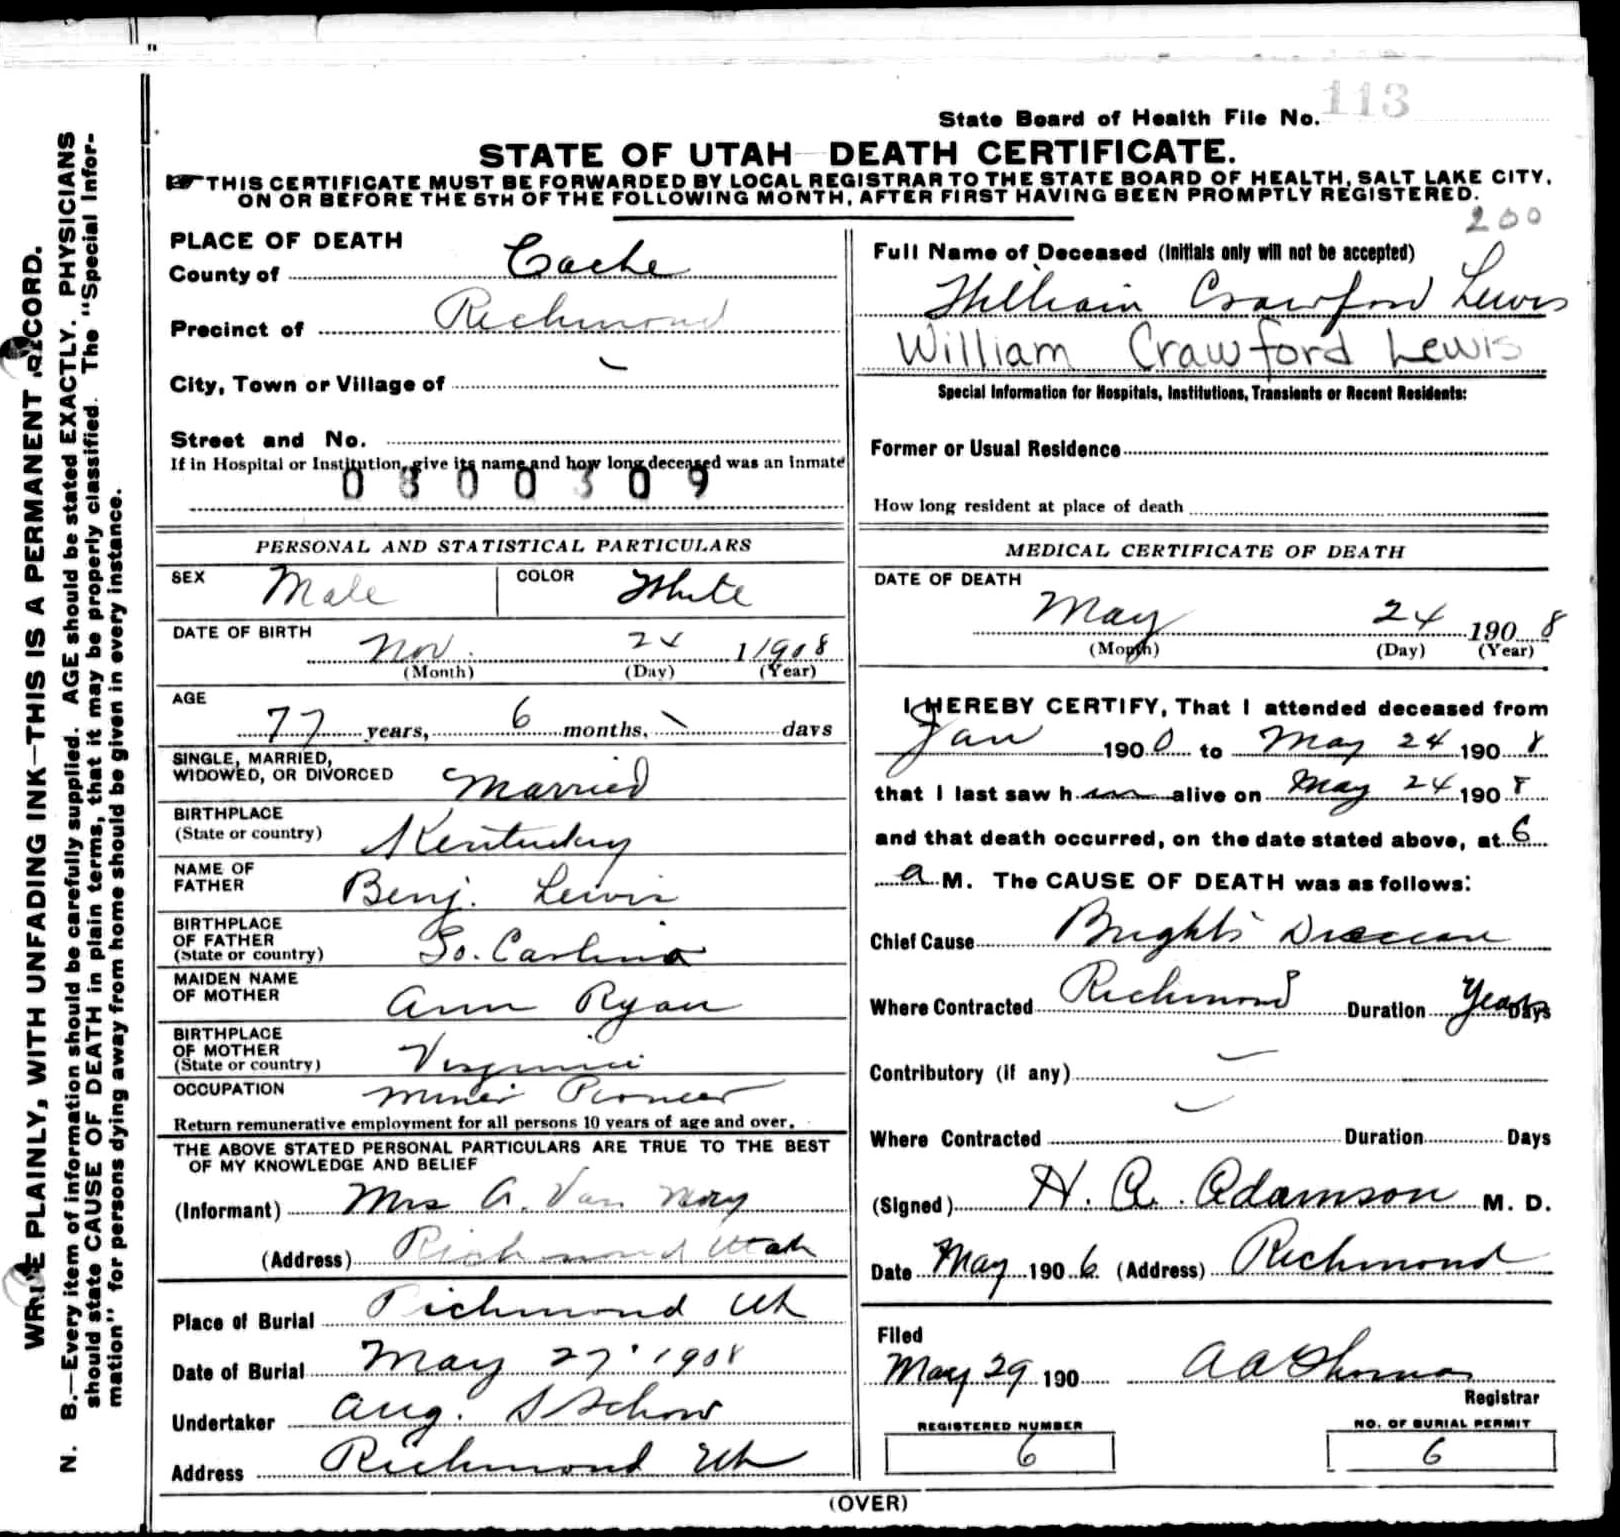 WRITE PLAINLY, WITH UNFADING INK—THIS IS A PERMANENT RECORD.
N. B.—Every item of information should be carefully supplied. AGE should be stated EXACTLY. PHYSICIANS
should state CAUSE OF DEATH in plain terms, that it may be properly classified. The "Special Infor-
mation" for persons dying away from home should be given in every instance.
State Board of Health File No. 113
STATE OF UTAH—DEATH CERTIFICATE.
THIS CERTIFICATE MUST BE FORWARDED BY LOCAL REGISTRAR TO THE STATE BOARD OF HEALTH, SALT LAKE CITY,
ON OR BEFORE THE 5TH OF THE FOLLOWING MONTH, AFTER FIRST HAVING BEEN PROMPTLY REGISTERED.
200
PLACE OF DEATH
County of Cache
Precinct of Richmond
City, Town or Village of
Street and No.
If in Hospital or Institution, give its name and how long deceased was an inmate
0800309
Full Name of Deceased (Initials only will not be accepted)
William Crawford Lewis
William Crawford Lewis
Special Information for Hospitals, Institutions, Transients or Recent Residents:
Former or Usual Residence
How long resident at place of death
PERSONAL AND STATISTICAL PARTICULARS
SEX Male COLOR White
DATE OF BIRTH
Nov. 24 1908
(Month) (Day) (Year)
AGE
77 years, 6 months, days
SINGLE, MARRIED,
WIDOWED, OR DIVORCED Married
BIRTHPLACE
(State or country) Kentucky
NAME OF
FATHER Benj. Lewis
BIRTHPLACE
OF FATHER
(State or country) So. Carlina
MAIDEN NAME
OF MOTHER Ann Ryan
BIRTHPLACE
OF MOTHER
(State or country) Virginia
OCCUPATION Miner Pioneer
Return remunerative employment for all persons 10 years of age and over.
THE ABOVE STATED PERSONAL PARTICULARS ARE TRUE TO THE BEST
OF MY KNOWLEDGE AND BELIEF
(Informant) Mrs A. Van
(Address) Richmond Utah
Place of Burial Richmond Ut
Date of Burial May 27 1908
Undertaker Aug. S Schow
Address Richmond Ut
MEDICAL CERTIFICATE OF DEATH
DATE OF DEATH
May 24 1908
(Month) (Day) (Year)
I HEREBY CERTIFY, That I attended deceased from
Jan 1900 to May 24 1908
that I last saw him alive on May 24 1908
and that death occurred, on the date stated above, at 6
a M. The CAUSE OF DEATH was as follows:
Chief Cause Bright's Disease
Where Contracted Richmond Duration Years Days
Contributory (if any)
Where Contracted Duration Days
(Signed) H. A. Adamson M. D.
Date May 1906 (Address) Richmond
Filed
May 29 190 A A Thomas
Registrar
REGISTERED NUMBER
6
NO. OF BURIAL PERMIT
6
(OVER)